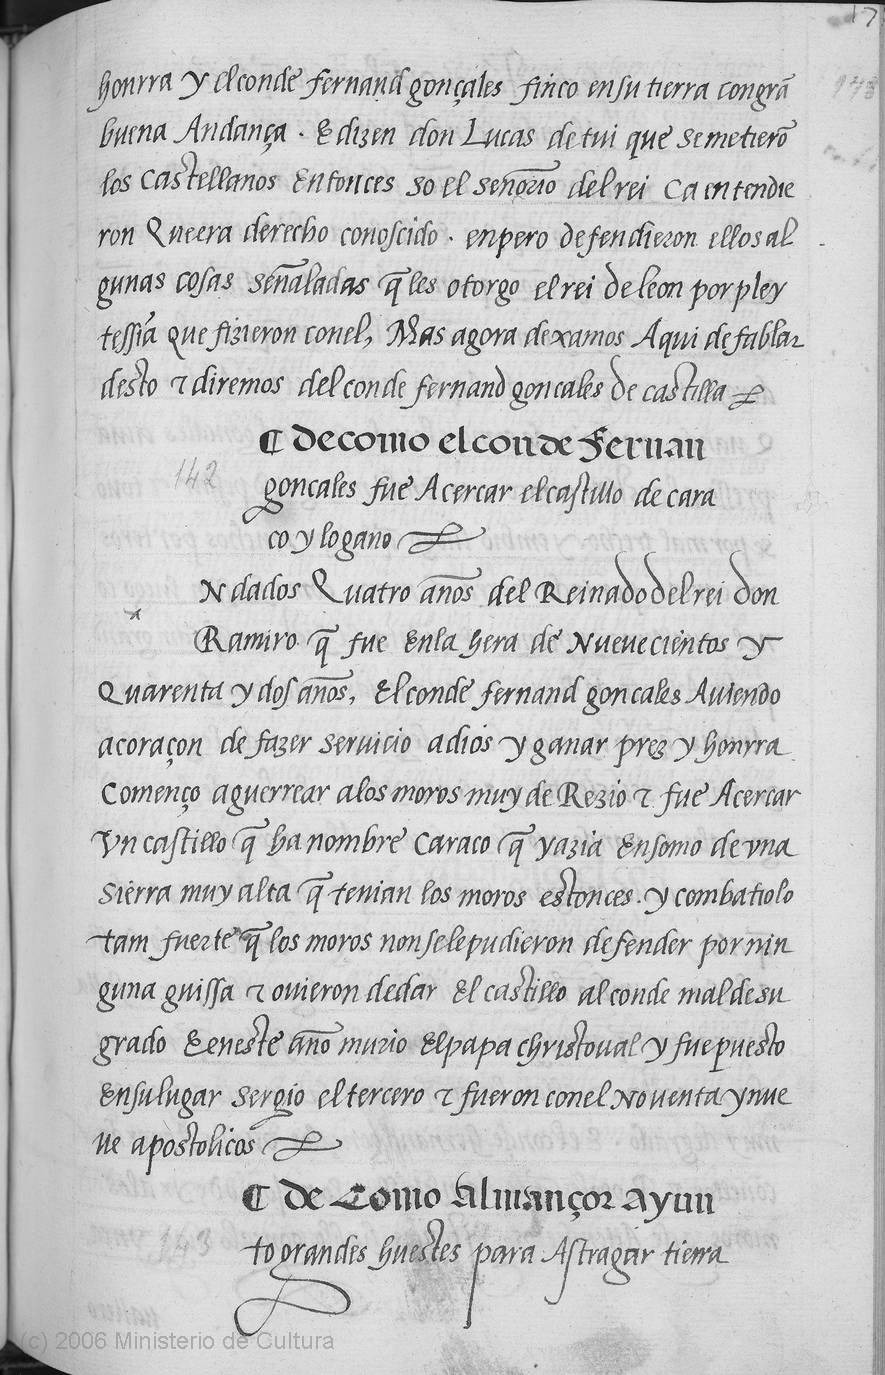 17
honrra y el conde fernand gonçales finco ensu tierra congrã
buena Andança . E dizen don Lucas de tui que semetierõ
los Castellanos Entonces so el señorio del rei Ca entendie
ron Queera derecho conoscido . enpero defendieron ellos al
gunas cosas señaladas q̃ les otorgo el rei de leon por pley
tessia que fizieron conel, Mas agora dexamos Aqui de fablar
desto & diremos del conde fernand goncales de castilla
¶ De como el conde Fernan
142
goncales fue Acercar el castillo de cara
co y logano
Ndados Quatro años del Reinado del rei don
Ramiro q̃ fue Enla hera de Nuevecientos y
Quarenta y dos años, El conde fernand goncales Auiendo
acoraçon de fazer seruicio adios y ganar prez y honrra
Començo aguerrear alos moros muy de Rezio & fue Acercar
Vn castillo q̃ ha nombre Caraco q̃ yazia Ensomo de vna
Sierra muy alta q̃ tenian los moros estonces . y combatiolo
tam fuerte q̃ los moros nonselepudieron defender por nin
guna guissa & ouieron dedar El castillo al conde mal desu
grado E eneste año murio El papa christoual y fue puesto
Ensulugar Sergio el tercero & fueron conel Nouenta y nue
ue apostolicos
¶ De Como Almançor ayun
143
to grandes huestes para Astragar tierra
(c) 2006 Ministerio de Cultura